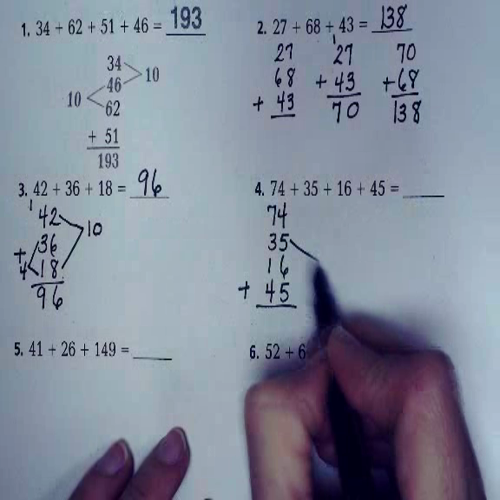 1. 34 + 62 + 51 + 46 = 193
34
46
10
10
62
+ 51
193
2. 27 + 68 + 43 = 138
27
68
+ 43
1
27
+ 43
70
70
+ 68
138
3. 42 + 36 + 18 = 96
1
42
10
36
+
4
18
96
4. 74 + 35 + 16 + 45 =
74
35
16
+ 45
5. 41 + 26 + 149 =
6. 52 + 6